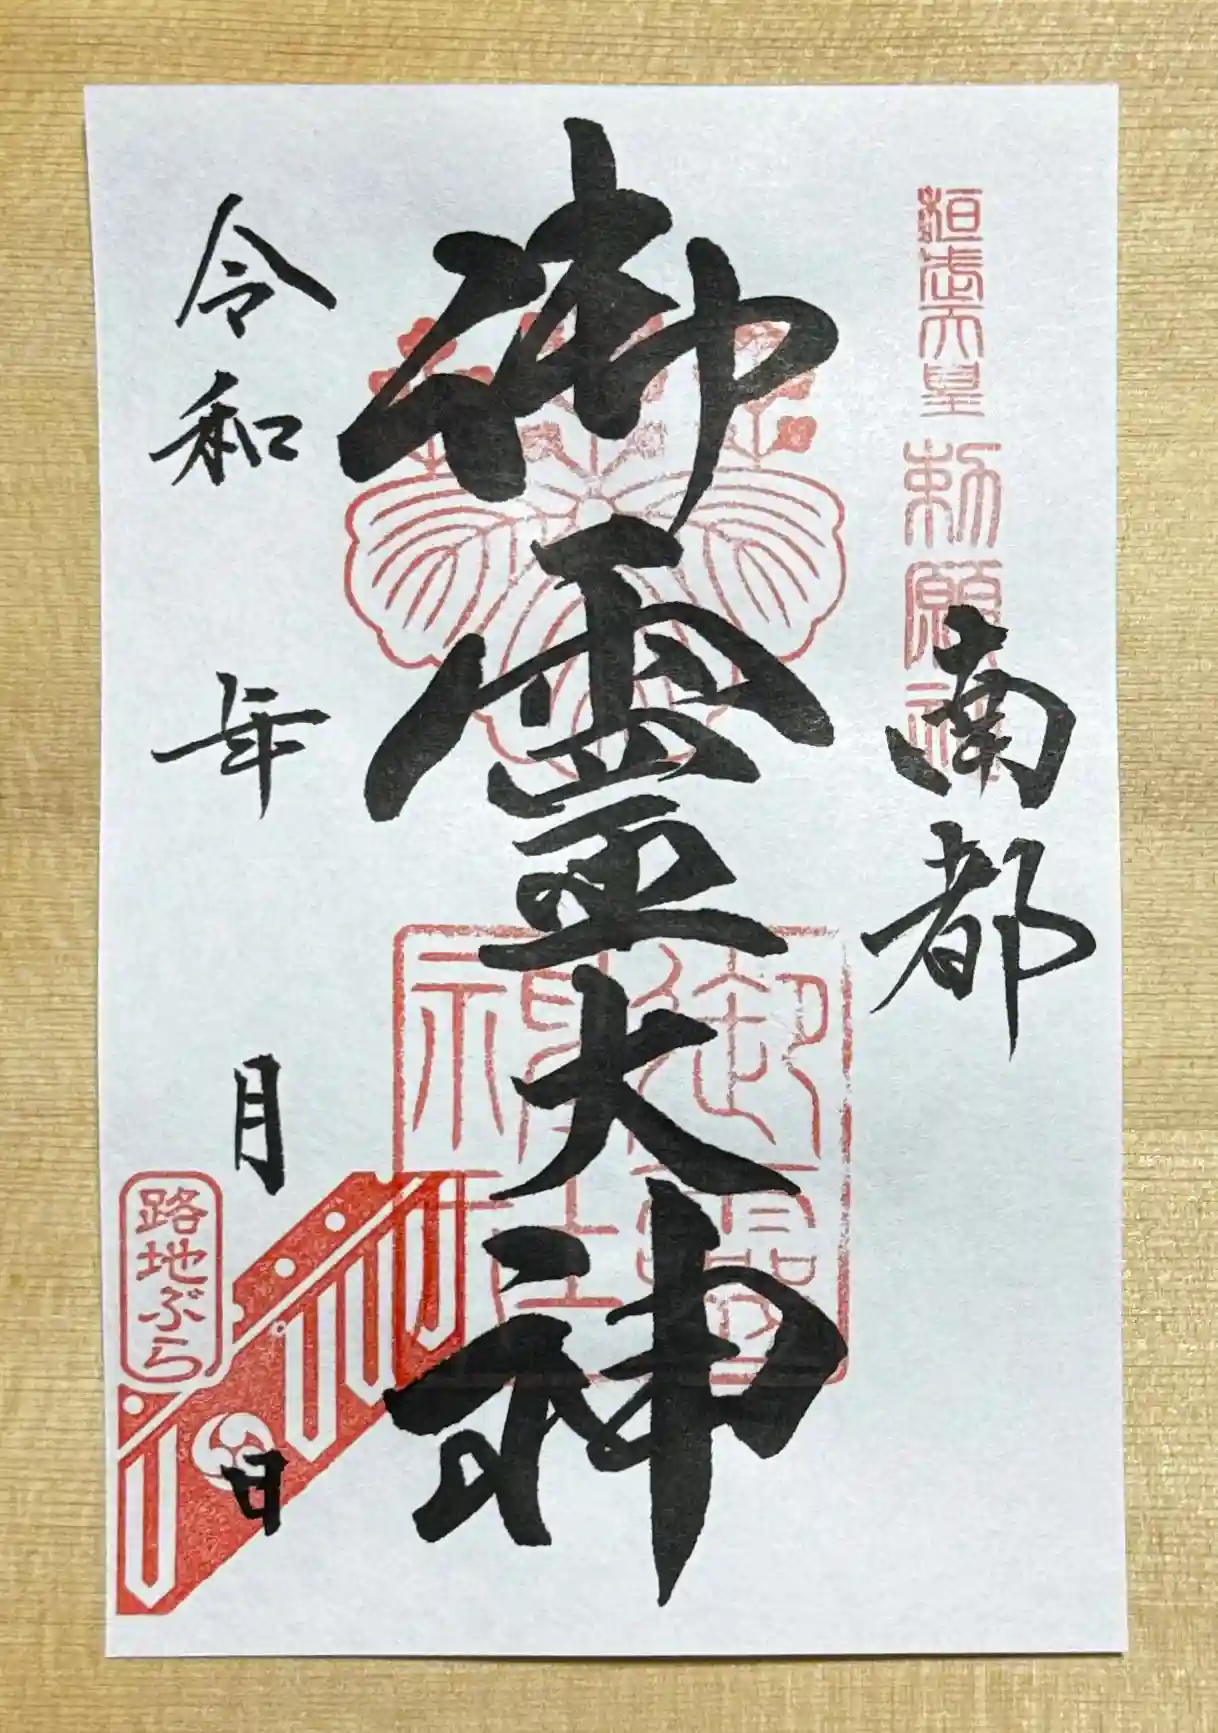 桓武天皇 勅願社
南都
御霊大神
御霊神社
令和 年 月 日
路地ぶら